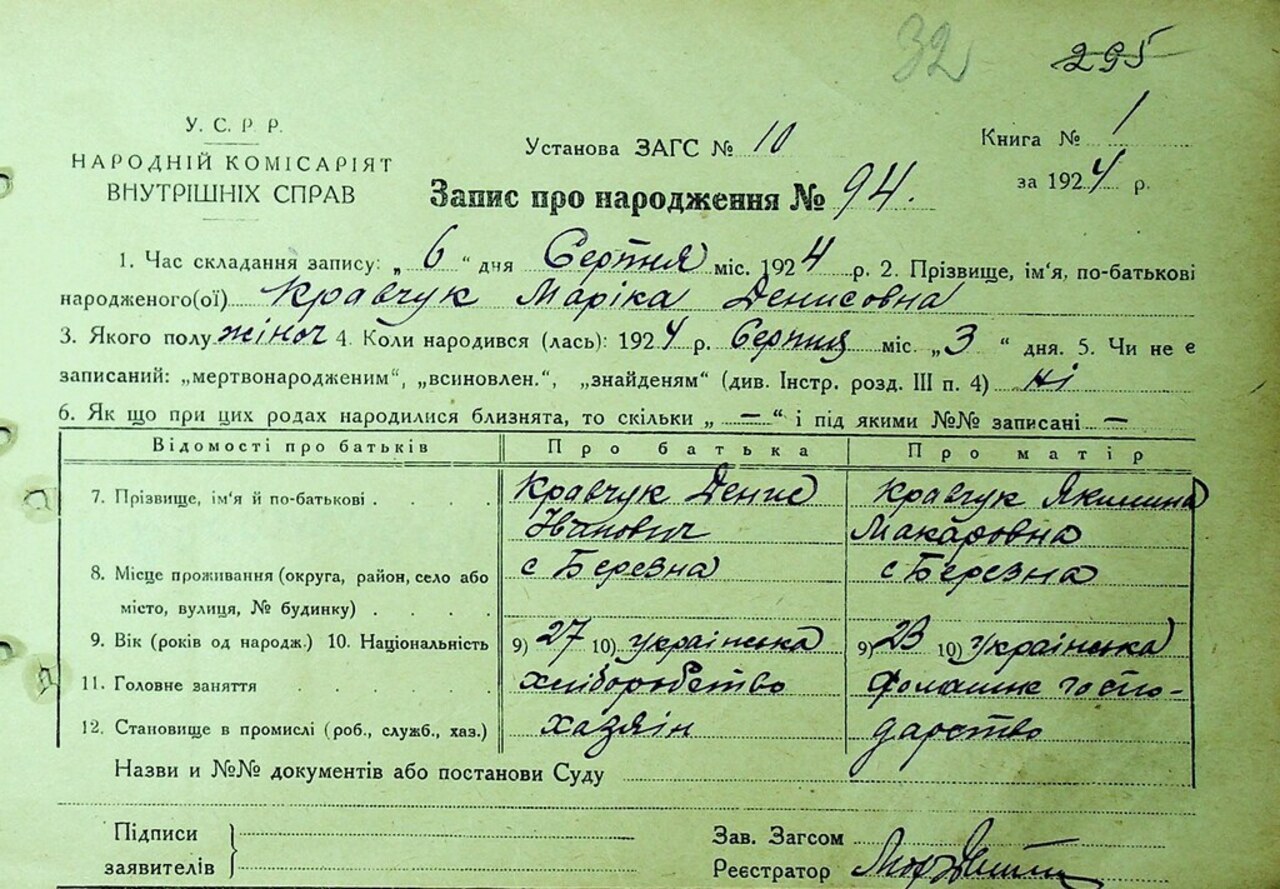 32 295
У. С. Р. Р.
НАРОДНІЙ КОМІСАРІЯТ
ВНУТРІШНІХ СПРАВ
Установа ЗАГС № 10
Книга № 1
за 1924 р.
Запис про народження № 94.
1. Час складання запису: „ 6 “ дня Серпня міс. 1924 р. 2. Прізвище, ім'я, по-батькові
народженого(ої) Кравчук Маріка Денисовна
3. Якого полу жіноч 4. Коли народився (лась): 1924 р. Серпня міс. „ 3 “ дня. 5. Чи не є
записаний: „мертвонародженим“, „всиновлен.“, „знайденям“ (див. Інстр. розд. III п. 4) ні
6. Як що при цих родах народилися близнята, то скільки „ — “ і під якими №№ записані —
Відомості про батьків Про батька Про матір
7. Прізвище, ім'я й по-батькові . . . . Кравчук Денис Кравчук Якилина
Іванович Макаровна
8. Місце проживання (округа, район, село або с Березна с Березна
місто, вулиця, № будинку) . . . .
9. Вік (років од народж.) 10. Національність 9) 27 10) українська 9) 23 10) українська
11. Головне заняття . . . . . хліборобство госпо-
12. Становище в промислі (роб., служб., хаз.) хазяін дарство
Назви и №№ документів або постанови Суду
Підписи
заявителів
Зав. Загсом
Реєстратор